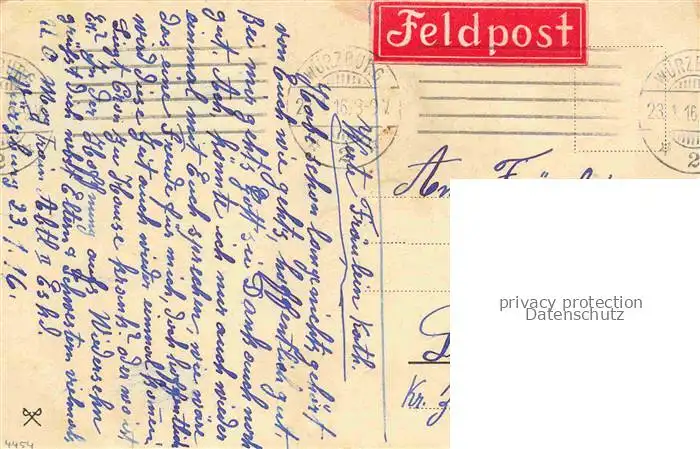 Feldpost
WÜRZBURG
WÜRZBURG
23.1.16.
Fräulein Kath.
Habe schon lang nichts gehört
von Euch wie gehts, hoffentlich gut,
Bei mir gehts Gott sei Dank auch noch
gut. Ach, könnte ich nur auch wieder
einmal mit Euch sprechen, wie wäre
das eine Freude für mich, doch hoffentlich
wird diese Zeit auch wieder einmal kommen,
zu Hause krank oder wo ist
Er? In der Hoffnung aufs Wiedersehn
grüßt Dich nebst Eltern & Schwestern vielmals
Würzburg 23.1.16.
An
Kr.
privacy protection
Datenschutz
4454